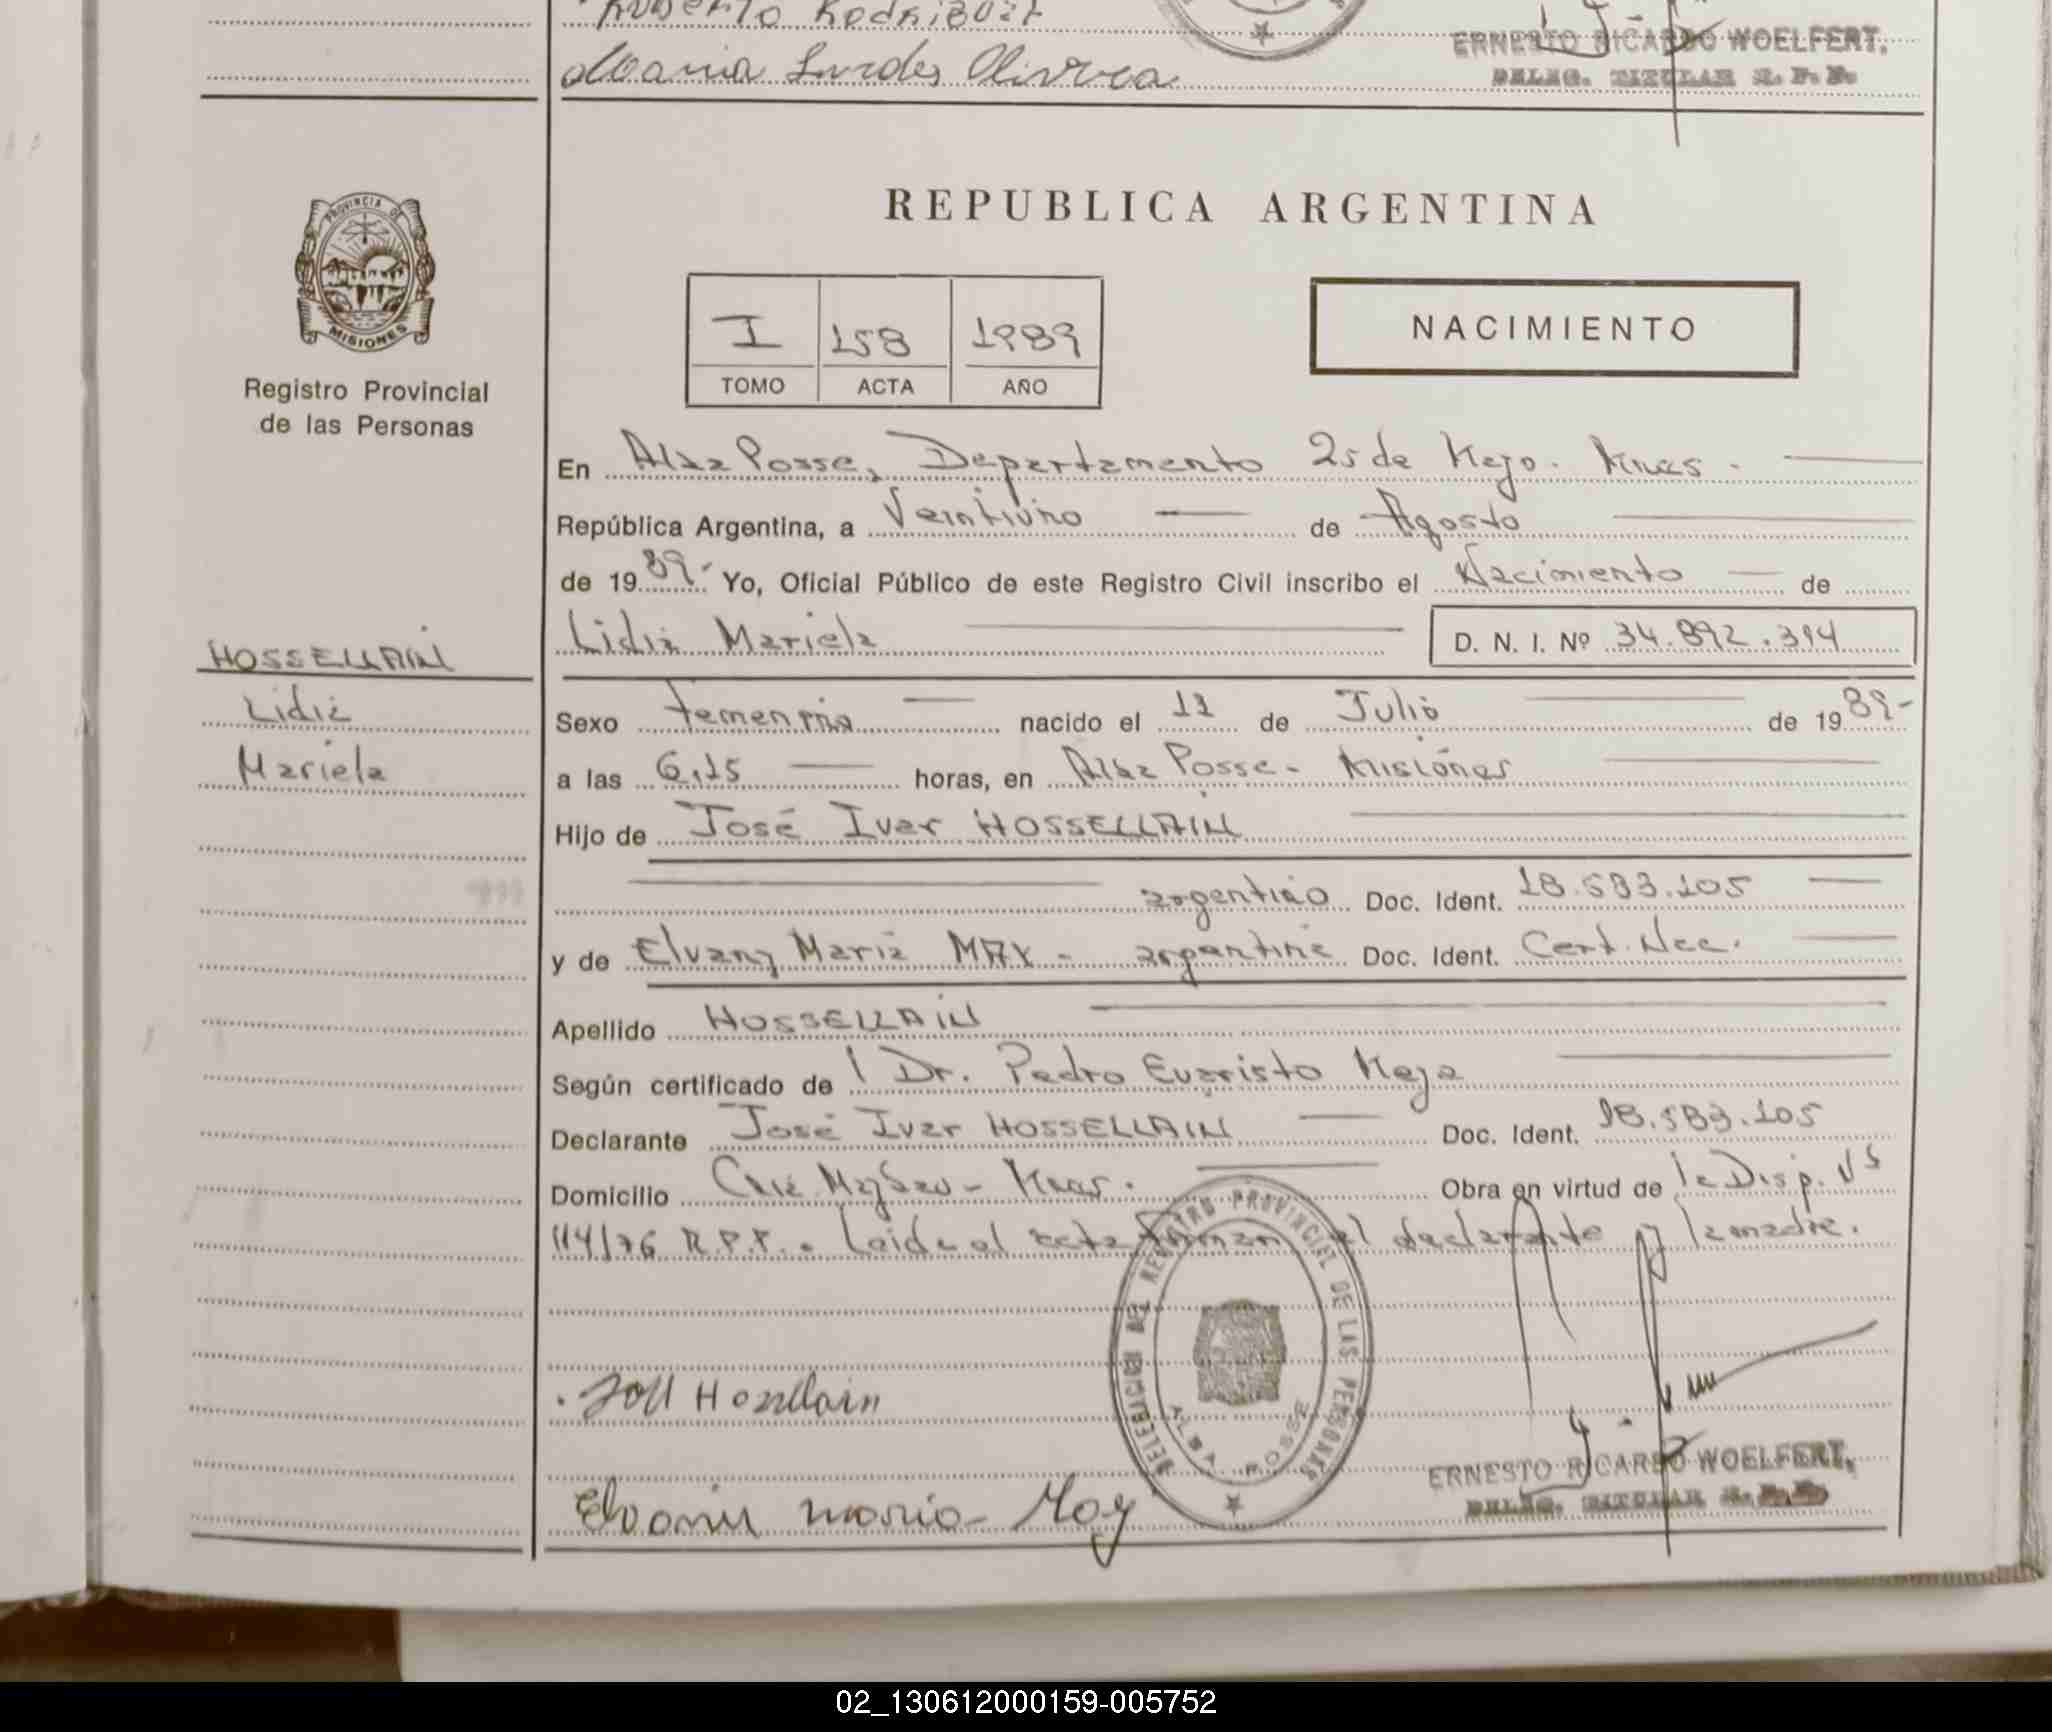 Roberto Rodriguez
Maria Lurdes Olivera
ERNESTO RICARDO WOELFERT,
DELEG. TITULAR R. P. P.
PROVINCIA DE
MISIONES
Registro Provincial
de las Personas
REPUBLICA ARGENTINA
I 158 1989
TOMO ACTA AÑO
NACIMIENTO
En Alba Posse, Departamento 25 de Mayo. Mnes.
República Argentina, a Veintiuno de Agosto
de 1989.- Yo, Oficial Público de este Registro Civil inscribo el Nacimiento de
Lidia Mariela D. N. I. Nº 34.892.394
HOSSELLAIN
Lidia
Mariela
Sexo femenino nacido el 11 de Julio de 1989-
a las 6,15 horas, en Alba Posse- Misiones
Hijo de José Ivar HOSSELLAIN
argentino Doc. Ident. 18.583.105
y de Elvany Maria MAY - argentina Doc. Ident. Cert. Nac.
Apellido HOSSELLAIN
Según certificado de Dr. Pedro Evaristo Meza
Declarante José Ivar HOSSELLAIN Doc. Ident. 18.583.105
Domicilio Mnes. Obra en virtud de la Disp. Nº
114/76 R.P.P. Leida el acta firman el declarante y la madre.
DELEGACION DEL REGISTRO PROVINCIAL DE LAS PERSONAS
ALBA POSSE
José Hossellain
Elvani maria May
ERNESTO RICARDO WOELFERT,
DELEG. TITULAR R. P. P.
02_130612000159-005752